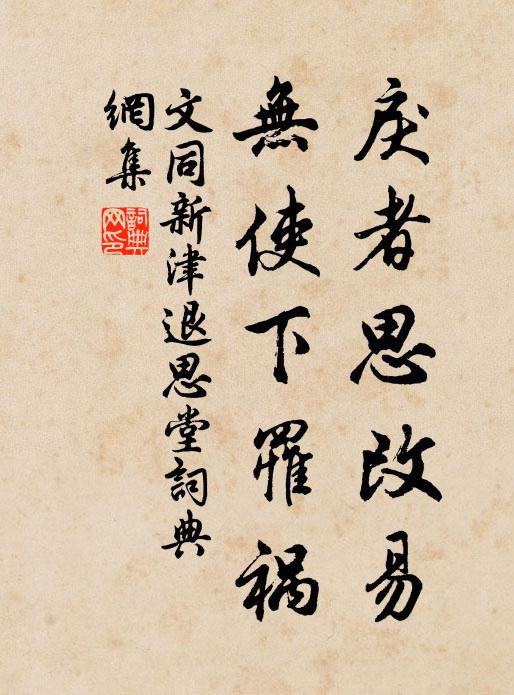 戾者思改易
無使下罹禍
文同新津退思堂詞典
網集
詞典
网印